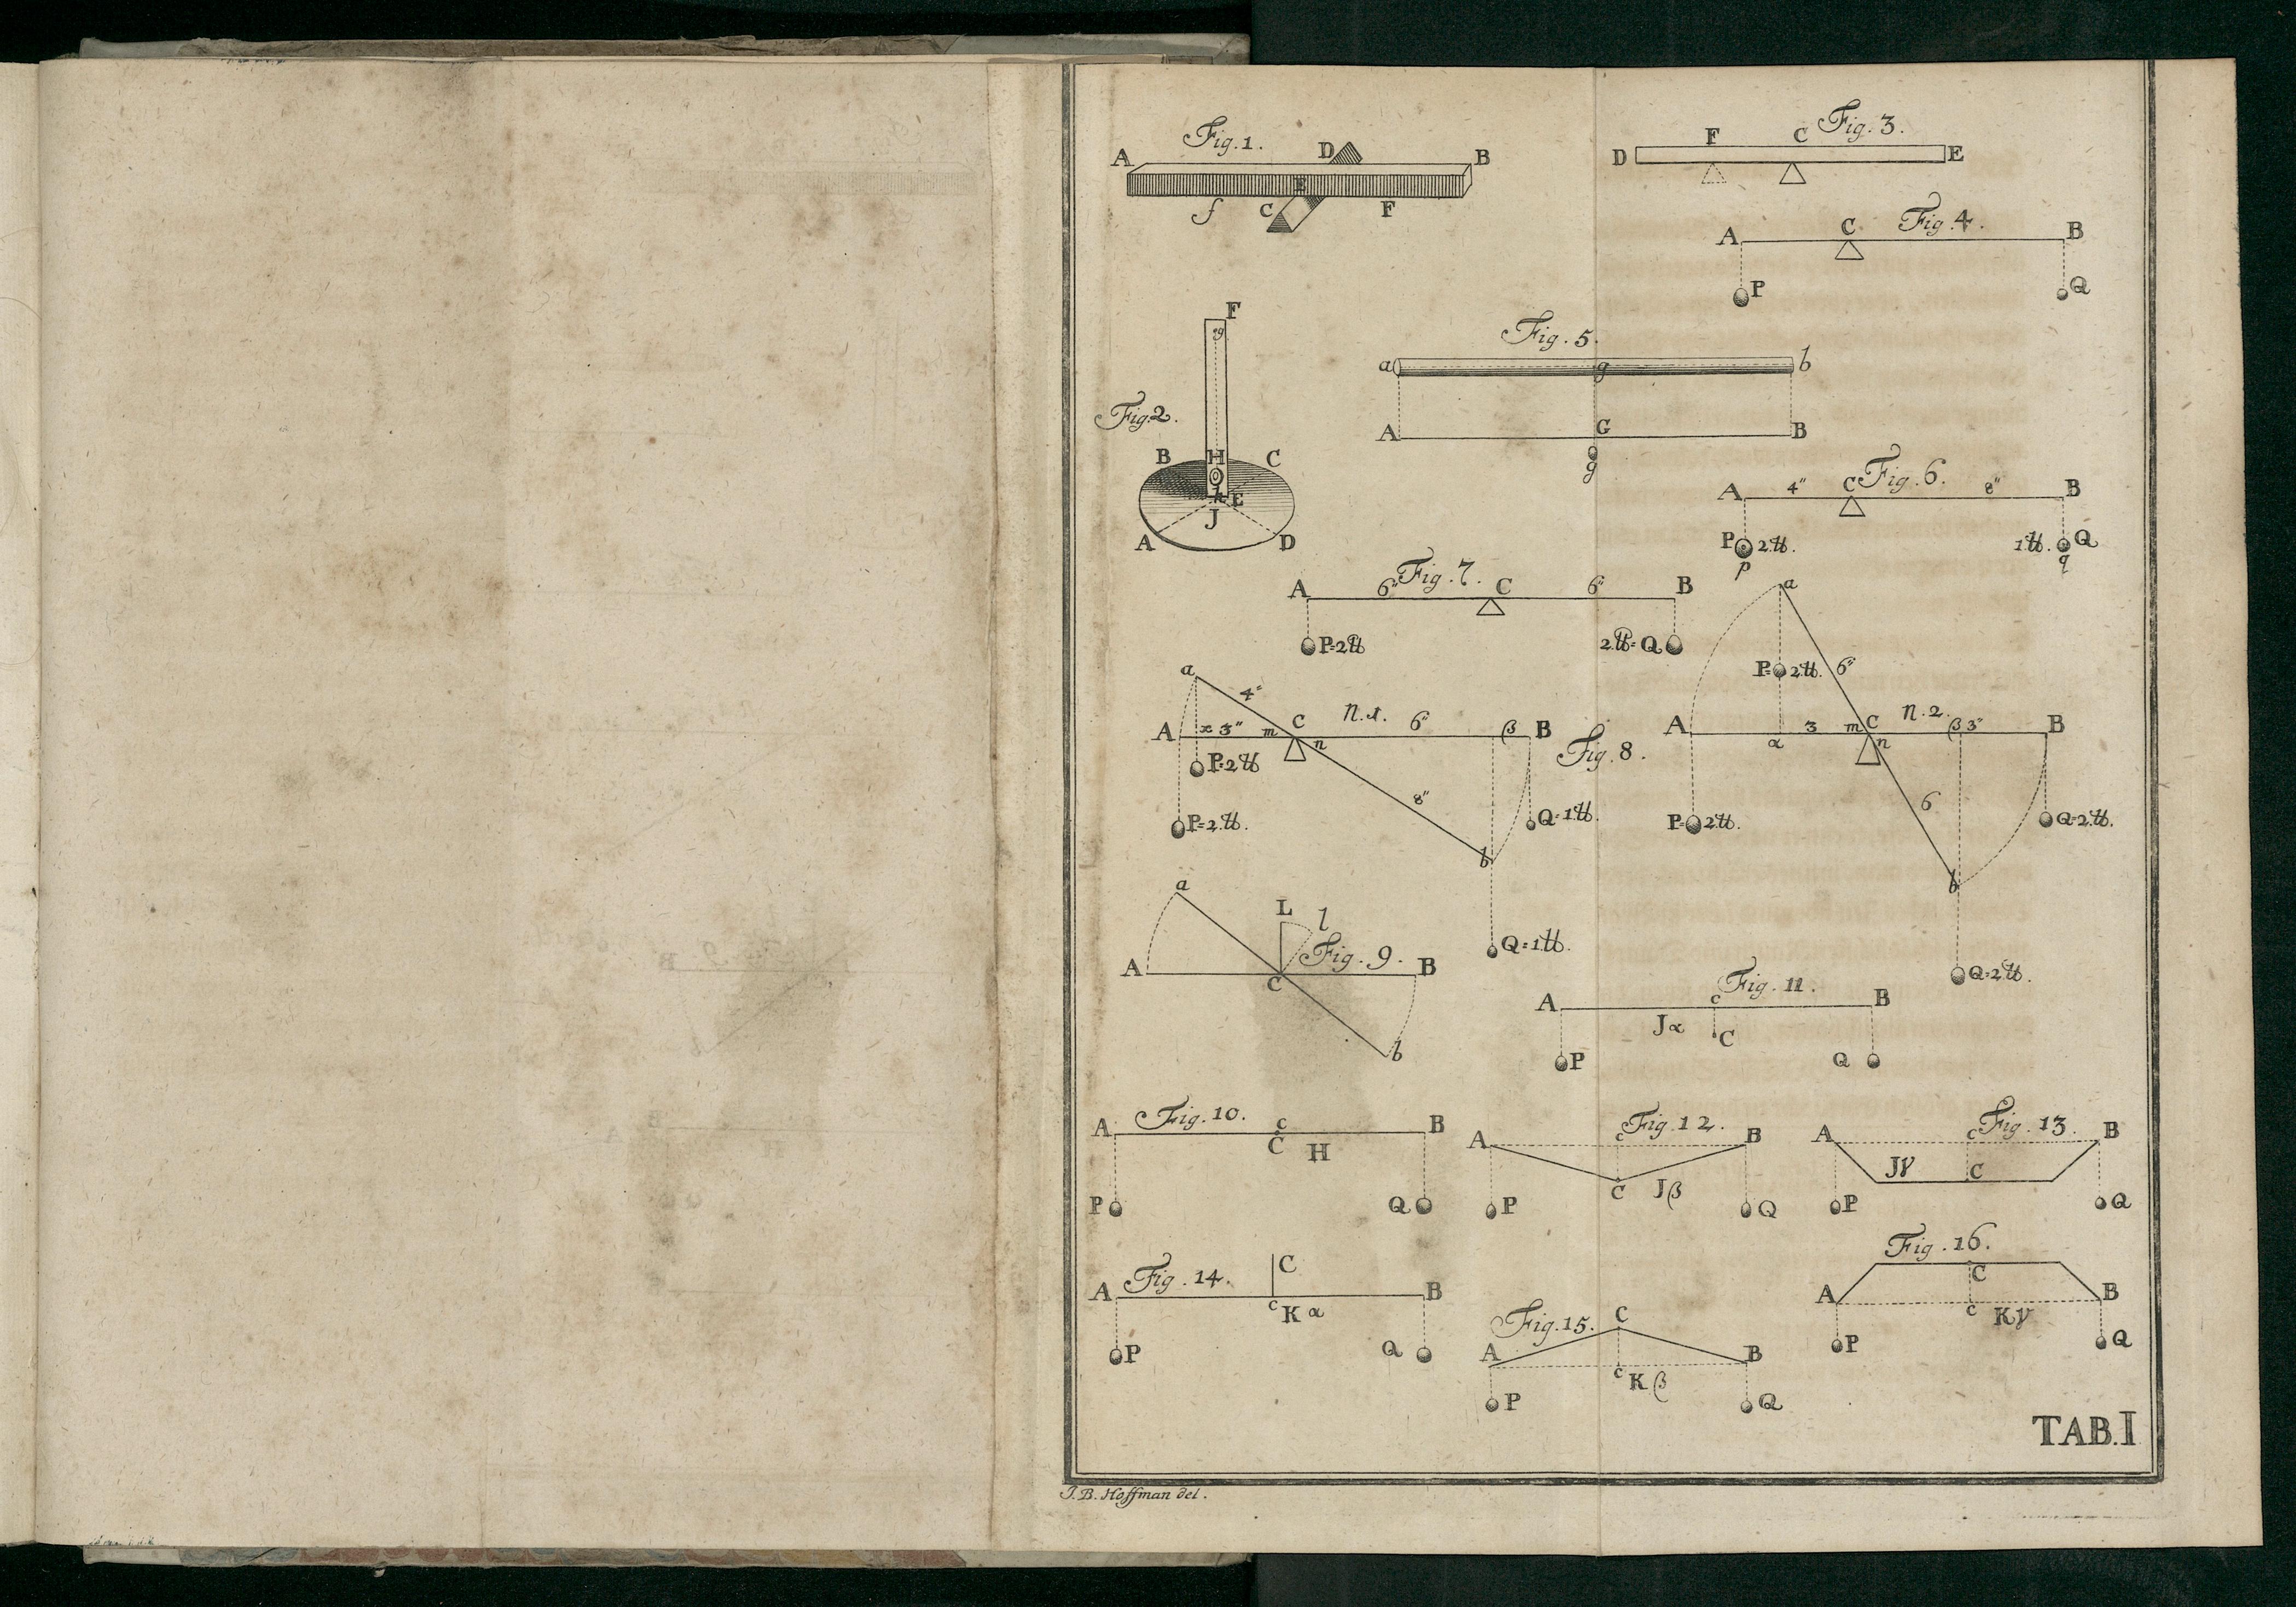 Fig. 1.
A D B
E
f C F
Fig. 3.
D F C E
Fig. 4.
A C B
P Q
Fig. 2.
F
g
B H C
h E
J
A D
Fig. 5.
a g b
A G B
g
Fig. 6.
A 4" C 8" B
P 2 ℔. 1 ℔. Q
p q
Fig. 7.
A 6" C 6" B
P=2℔ 2℔=Q
Fig. 8.
a 4" C n.1. 6" β B
A 3" m n
P=2℔
8"
P=2.℔. Q=1.℔.
b
Q=1℔.
a
P=2.℔. 6"
A 3 m C n.2. β 3" B
α n
6
P=2℔. Q=2.℔.
b
Q=2.℔.
Fig. 9.
a
L l
A C B
b
Fig. 11.
A c B
Jα C
P Q
Fig. 10.
A c B
C H
P Q
Fig. 12.
A c B
C Jβ
P Q
Fig. 13.
A c B
Jγ C
P Q
Fig. 14.
C
A B
c K α
P Q
Fig. 15.
C
A B
c K β
P Q
Fig. 16.
C
A B
c Kγ
P Q
TAB. I
J. B. Hoffman del.